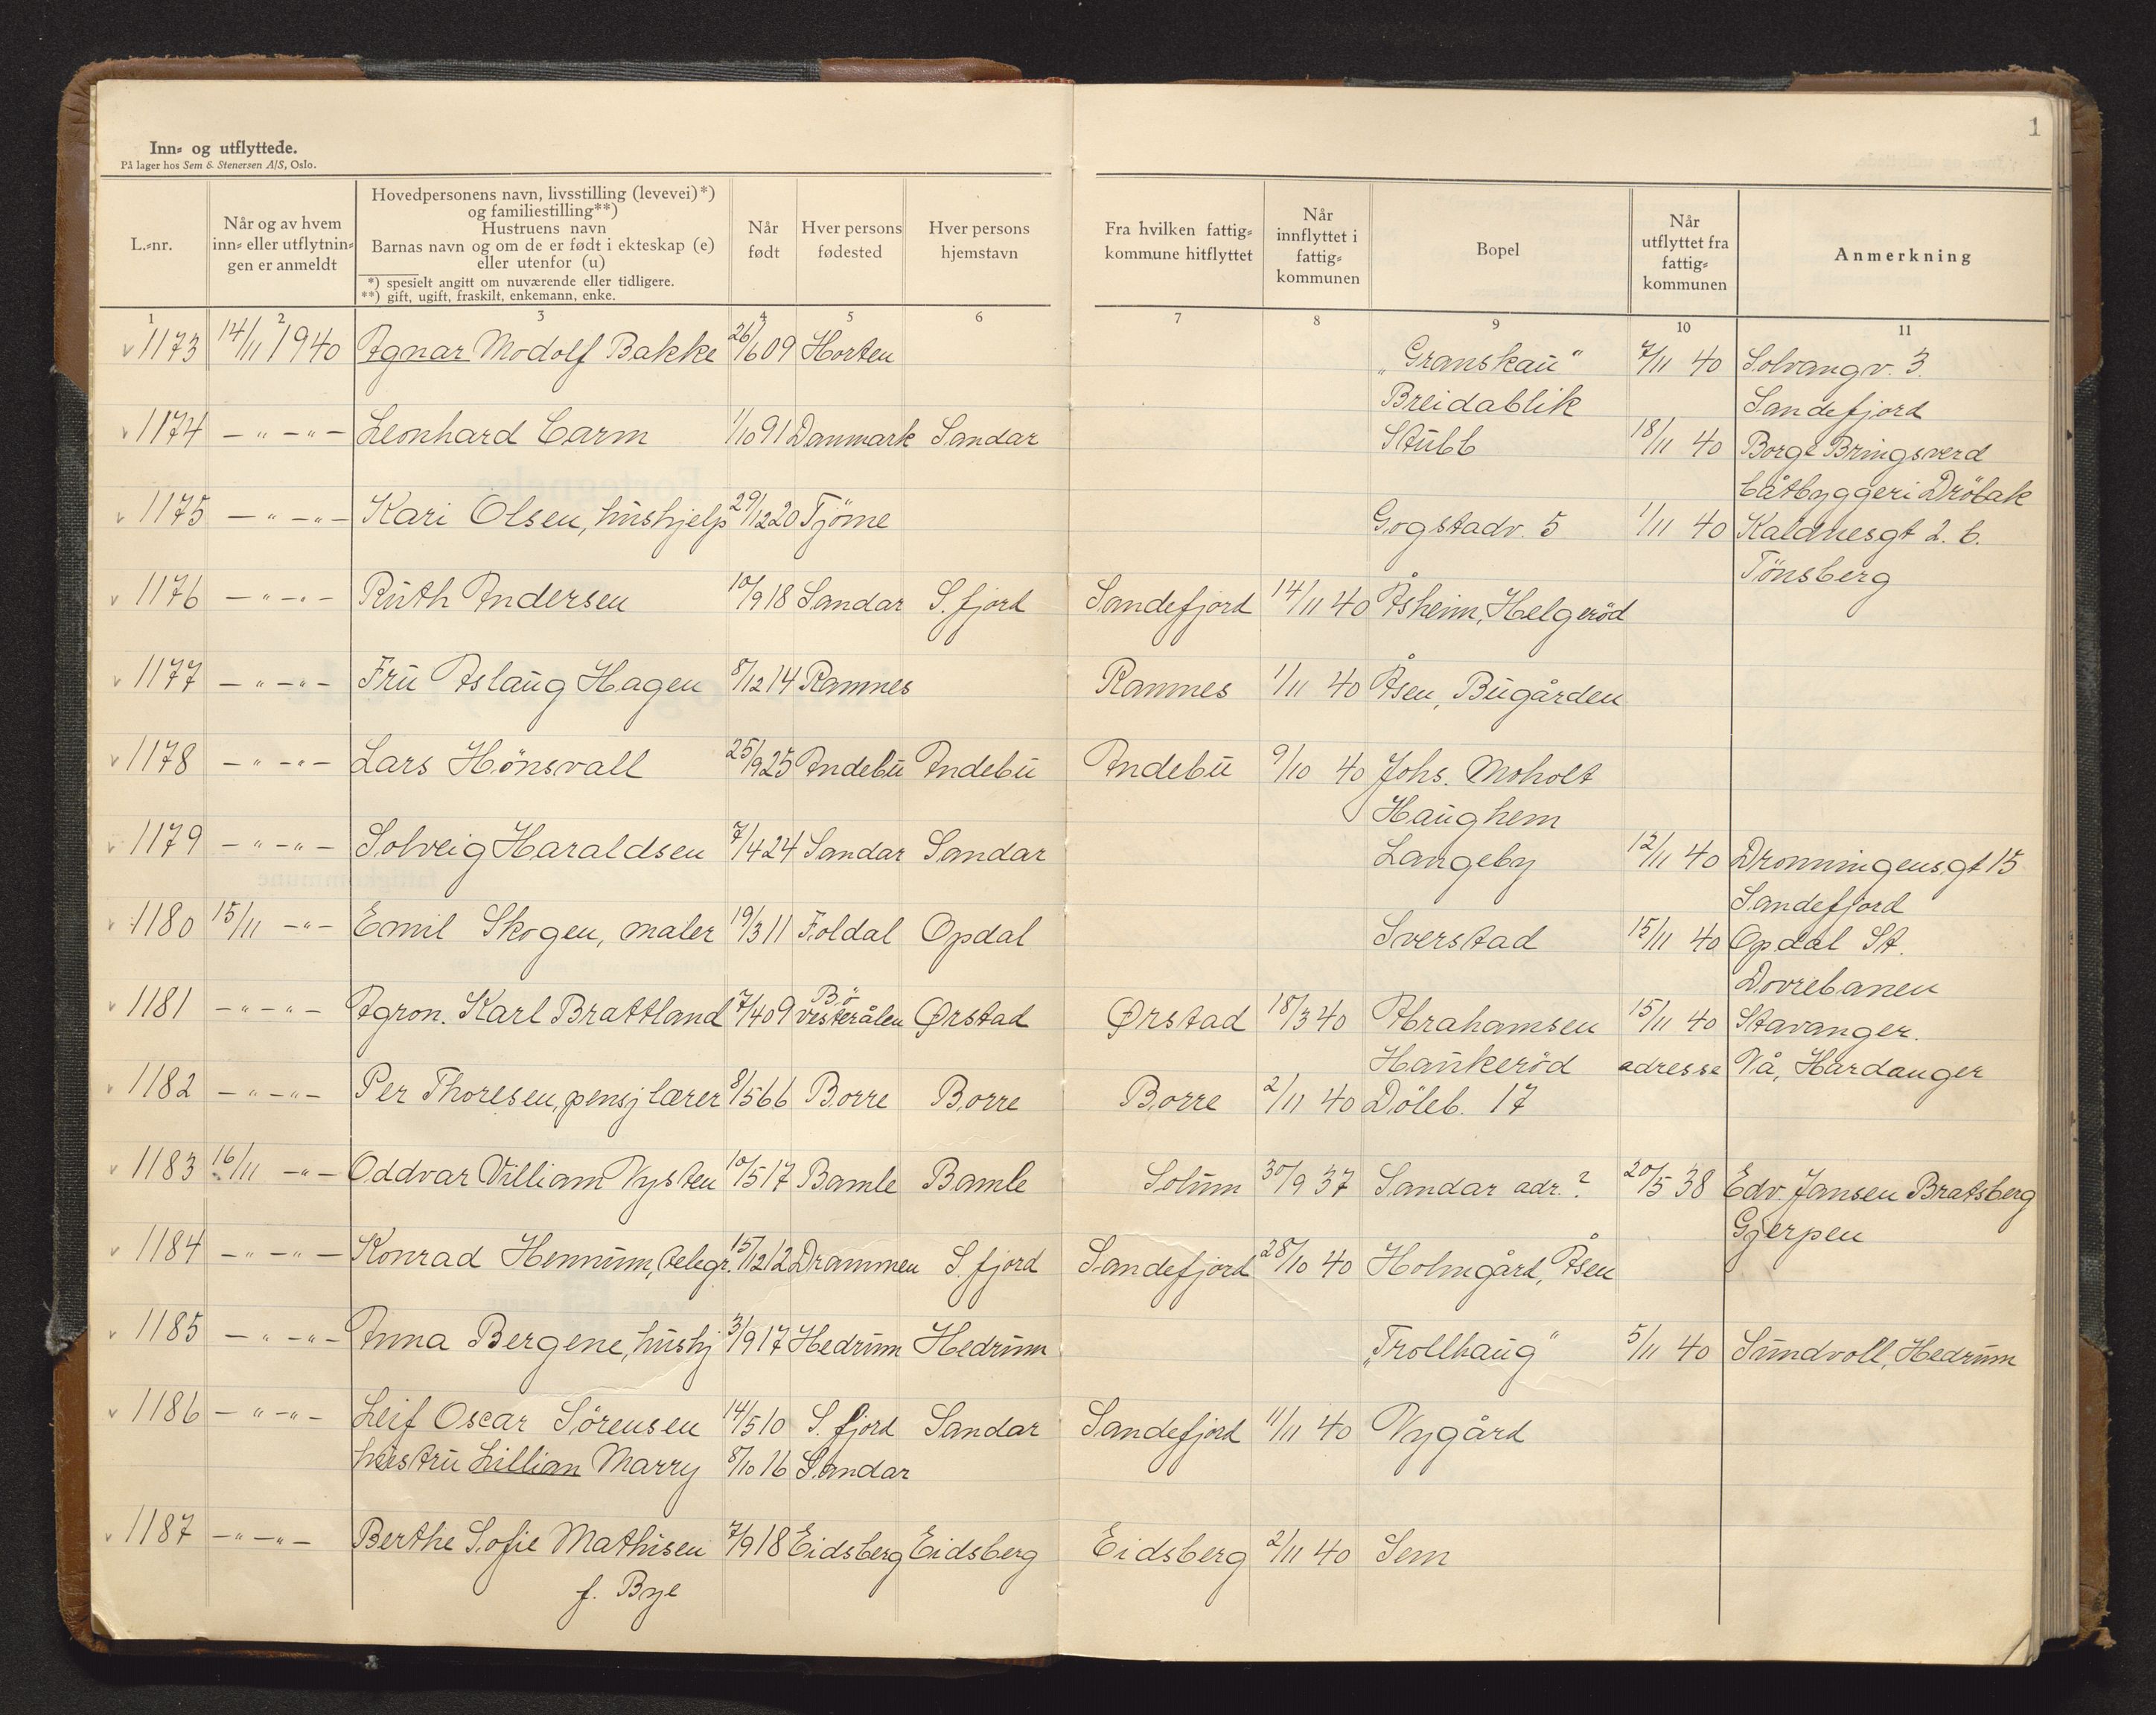 1
Inn= og utflyttede.
På lager hos Sem & Stenersen A/S, Oslo.
L.=nr.
Når og av hvem
inn= eller utflytnin=
gen er anmeldt
Hovedpersonens navn, livsstilling (levevei)*)
og familiestilling**)
Hustruens navn
Barnas navn og om de er født i ekteskap (e)
eller utenfor (u)
*) spesielt angitt om nuværende eller tidligere.
**) gift, ugift, fraskilt, enkemann, enke.
Når
født
Hver persons
fødested
Hver persons
hjemstavn
Fra hvilken fattig=
kommune hitflyttet
Når
innflyttet i
fattig=
kommunen
Bopel
Når
utflyttet fra
fattig=
kommunen
Anmerkning
1 2 3 4 5 6 7 8 9 10 11
v 1173 14/11 1940 Agnar Modolf Bakke 26/6 09 Horten „Granskau“ 7/11 40 Solvangv. 3.
Breidablik Sandefjord
v 1174 – " – " – Leonhard Carm 1/10 91 Danmark Sandar Stubb 18/11 40 Borge Bringsverd
båtbyggeri Dröbak
v 1175 – " – " – Kari Olsen, hushjelp 29/12 20 Tjöme Gogstadv. 5 1/11 40 Kaldnesgt 2. b.
Tönsberg
v 1176 – " – " – Ruth Andersen 10/9 18 Sandar S.fjord Sandefjord 14/11 40 Åsheim, Helgeröd
v 1177 – " – " – Fru Aslaug Hagen 8/12 14 Ramnes Ramnes 1/11 40 Åsen, Bugården
v 1178 – " – " – Lars Hönsvall 25/9 25 Andebu Andebu Andebu 9/10 40 Johs. Moholt
Haughem
v 1179 – " – " – Solveig Haraldsen 7/4 24 Sandar Sandar Langeby 12/11 40 Dronningensgt 15
Sandefjord
v 1180 15/11 – " – Emil Skogen, maler 19/3 11 Foldal Opdal Sverstad 15/11 40 Opdal St.
Dovrebanen
v 1181 – " – " – Agron. Karl Brattland 7/4 09 Bö Vesterålen Ørstad Ørstad 18/3 40 Abrahamsen 15/11 40 Stavanger.
Haukeröd adresse Nå, Hardanger
v 1182 – " – " – Per Thoresen, pensj lærer 8/5 66 Borre Borre Borre 2/11 40 Döleb. 17
v 1183 16/11 – " – Oddvar Villiam Nysten 10/5 17 Bamle Bamle Solum 30/9 37 Sandar adr. ? 20/5 38 Edv. Jansen Bratsberg
Gjerpen
v 1184 – " – " – Konrad Hennum, telegr. 15/12 12 Drammen S. fjord Sandefjord 28/10 40 Holmgård, Åsen
v 1185 – " – " – Anna Bergene, hushj 3/9 17 Hedrum Hedrum „Trollhaug“ 5/11 40 Sundvoll, Hedrum
v 1186 – " – " – Leif Oscar Sörensen 14/5 10 S. fjord Sandar Sandefjord 11/11 40 Nygård
hustru Lillian Marry 8/10 16 Sandar
v 1187 – " – " – Berthe Sofie Mathisen 7/9 18 Eidsberg Eidsberg Eidsberg 2/11 40 Sem
f. Bye